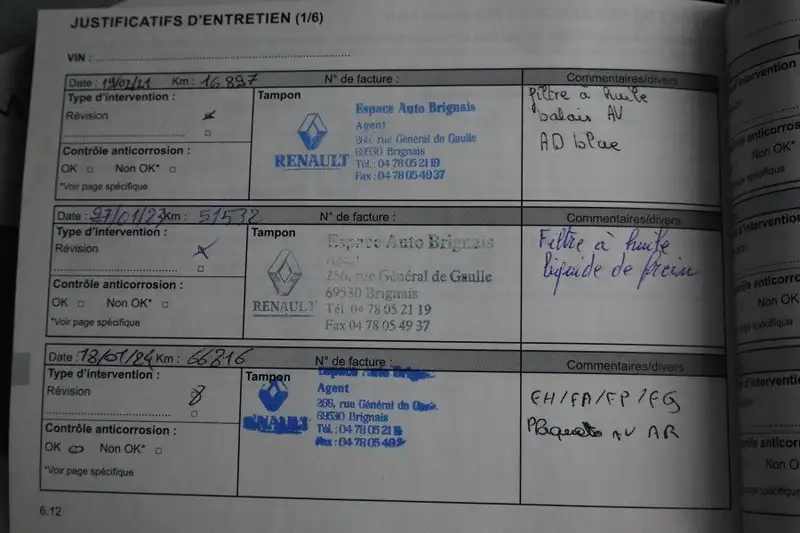 JUSTIFICATIFS D'ENTRETIEN (1/6)
VIN :
Date : 19/02/21 Km : 16 897 N° de facture : Commentaires/divers
Type d'intervention :
Révision
Contrôle anticorrosion :
OK Non OK*
*Voir page spécifique
Tampon
RENAULT
Espace Auto Brignais
Agent
266, rue Général de Gaulle
69530 Brignais
Tél. : 04 78 05 21 19
Fax : 04 78 05 49 37
filtre à huile
balais AV
AD blue
Date : 27/01/23 Km : 51532 N° de facture : Commentaires/divers
Type d'intervention :
Révision
Contrôle anticorrosion :
OK Non OK*
*Voir page spécifique
Tampon
RENAULT
Espace Auto Brignais
Agent
266, rue Général de Gaulle
69530 Brignais
Tél 04 78 05 21 19
Fax 04 78 05 49 37
Filtre à huile
liquide de frein
Date : 18/01/24 Km : 66816 N° de facture : Commentaires/divers
Type d'intervention :
Révision
Contrôle anticorrosion :
OK Non OK*
*Voir page spécifique
Tampon
RENAULT
Espace Auto
Agent
266, rue Général de
69530 Brignais
Tél. : 04 78 05 21
Fax : 04 78 05 49
FH/FA/FP/FG
Plaquettes AV AR
6.12
intervention
anticorrosion
Non OK*
spécifique
intervention
anticorrosion
Non OK*
spécifique
d'intervention
anticorrosion
Non O
spécifique